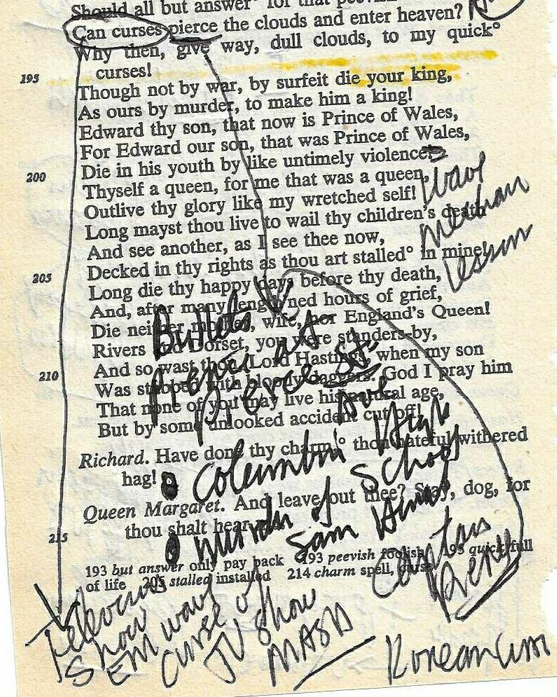 Should all but answer° for that peevish
Can curses pierce the clouds and enter heaven?
Why then, give way, dull clouds, to my quick°
195 curses!
Though not by war, by surfeit die your king,
As ours by murder, to make him a king!
Edward thy son, that now is Prince of Wales,
For Edward our son, that was Prince of Wales,
200 Die in his youth by like untimely violence.
Thyself a queen, for me that was a queen,
Outlive thy glory like my wretched self!
Long mayst thou live to wail thy children's death
And see another, as I see thee now,
Decked in thy rights as thou art stalled° in mine!
205 Long die thy happy days before thy death,
And, after many lengthened hours of grief,
Die neither mother, wife, nor England's Queen!
Rivers and Dorset, you were standers-by,
And so wast thou, Lord Hastings, when my son
210 Was stabbed with bloody daggers. God I pray him
That none of you may live his natural age,
But by some unlooked accident cut off!
Richard. Have done thy charm,° thou hateful withered
hag!
Queen Margaret. And leave out thee? Stay, dog, for
215 thou shalt hear
193 but answer only pay back 193 peevish foolish 195 quick full
of life 205 stalled installed 214 charm spell, curse
wave
Bullets
pierce
Columbin High
School
Murder of
Captain
Pierce
Show
EM wave
Curse of
TV Show
MASH
Korean